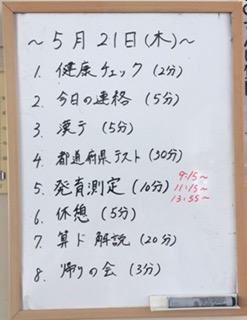 ～5月21日(木)～
1. 健康チェック (2分)
2. 今日の連絡 (5分)
3. 漢テ (5分)
4. 都道府県テスト (30分)
5. 発育測定 (10分)
9:15～
11:15～
13:55～
6. 休憩 (5分)
7. 算ド 解説 (20分)
8. 帰りの会 (3分)